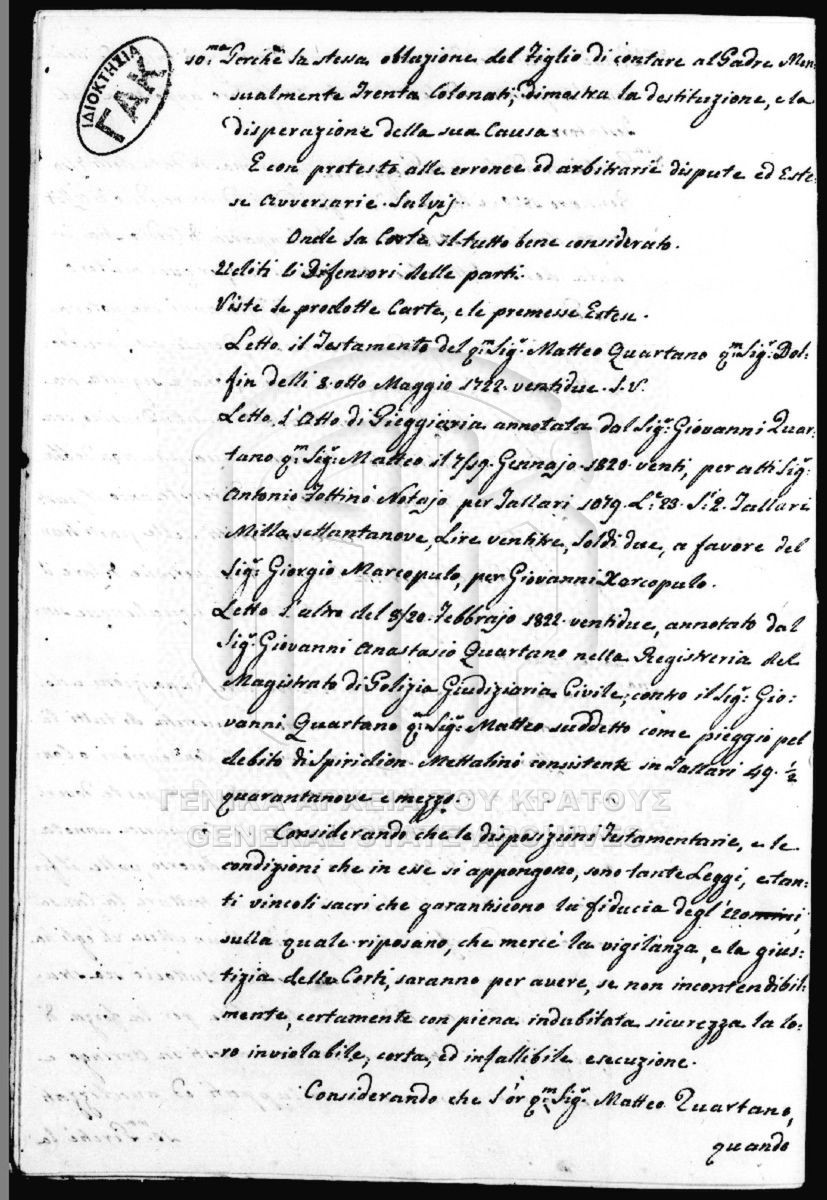 ΙΔΙΟΚΤΗΣΙΑ
ΓΑΚ
10:mo Perchè la stessa oblazione del Figlio di contare al Padre Men-
sualmente Trenta Colonati, dimostra la destituzione, e la
disperazione della sua Causa.
E con protesto alle erronee ed arbitrarie dispute ed Este-
se Avversarie. Salvij.
Onde la Corte il tutto bene considerato.
Uditi li Difensori delle parti.
Viste le prodotte Carte, e le premesse Estese.
Letto il Testamento del qm Sigr Matteo Quartano qm Sigr Dol-
fin delli 8. otto Maggio 1722. ventidue. S. V.
Letto l'Atto di Pieggiaria annotata dal Sigr Giovanni Quar-
tano qm Sigr Matteo il 7/19. Gennajo 1820. venti, per atti Sigr
Antonio Tottinò Notajo per Tallari 1079. Le 23. S: 2. Tallari
Milla settantanove, Lire ventitre, Soldi due, a favore del
Sigr Giorgio Marcopulo, per Giovanni Xarcopulo.
Letto l'altro del 8/20. Febbrajo 1822. ventidue, annotato dal
Sigr Giovanni Anastasio Quartano nella Registreria del
Magistrato di Polizia Giudiziaria Civile, contro il Sigr Gio-
vanni Quartano qm Sigr Matteo suddetto come pieggio pel
debito di Spiridion Mettalinò consistente in Tallari 49. ½
quarantanove e mezzo.
ΓΕΝΙΚΑ ΑΡΧΕΙΑ ΤΟΥ ΚΡΑΤΟΥΣ
GENERAL STATE ARCHIVES
Considerando che le disposizioni Testamentarie, e le
condizioni che in esse si appongono, sono tante Leggi, e tan-
ti vincoli sacri che garantiscono la fiducia degl' Uomini,
sulla quale riposano, che mercè la vigilanza, e la gius-
tizia delle Corti, saranno per avere, se non incontendibil-
mente, certamente con piena indubitata sicurezza la lo-
ro inviolabile, certa, ed infallibile esecuzione.
Considerando che l'or qm Sigr Matteo Quartano,
quando